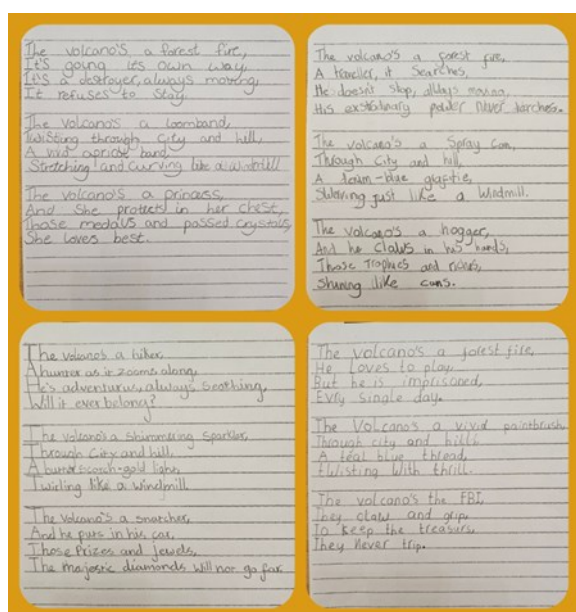 The volcano's a forest fire,
It's going its own way,
It's a destroyer, always moving,
It refuses to stay.
The volcano's a loomband,
Twisting through city and hill,
A vivid apricot band,
Stretching and curving like a windmill
The volcano's a princess,
And she protects in her chest,
Those medals and passed crystals,
She loves best.
The volcano's a forest fire,
A traveller, it searches,
He doesn't stop, always moving,
His power never
The volcano's a spray can,
Through city and hill,
A blue
just like a windmill.
The volcano's a hogger,
And he claws in his hands,
Those Trophies and
Shining like cans.
The volcano's a hiker,
A hunter as it zooms along,
He's always
Will it ever belong?
The volcano's a shimmering sparkler,
Through city and hill,
A butterscotch-gold light,
Twirling like a windmill
The volcano's a snatcher,
And he puts in his car,
Those Prizes and jewels,
The majestic diamonds will not go far.
The volcano's a forest fire,
He loves to play,
But he is imprisoned,
Evry single day.
The Volcano's a vivid paintbrush
Through city and hill,
A teal blue thread,
twisting with thrill.
The volcano's the FBI,
They claw and grip,
To keep the treasure,
They never trip.